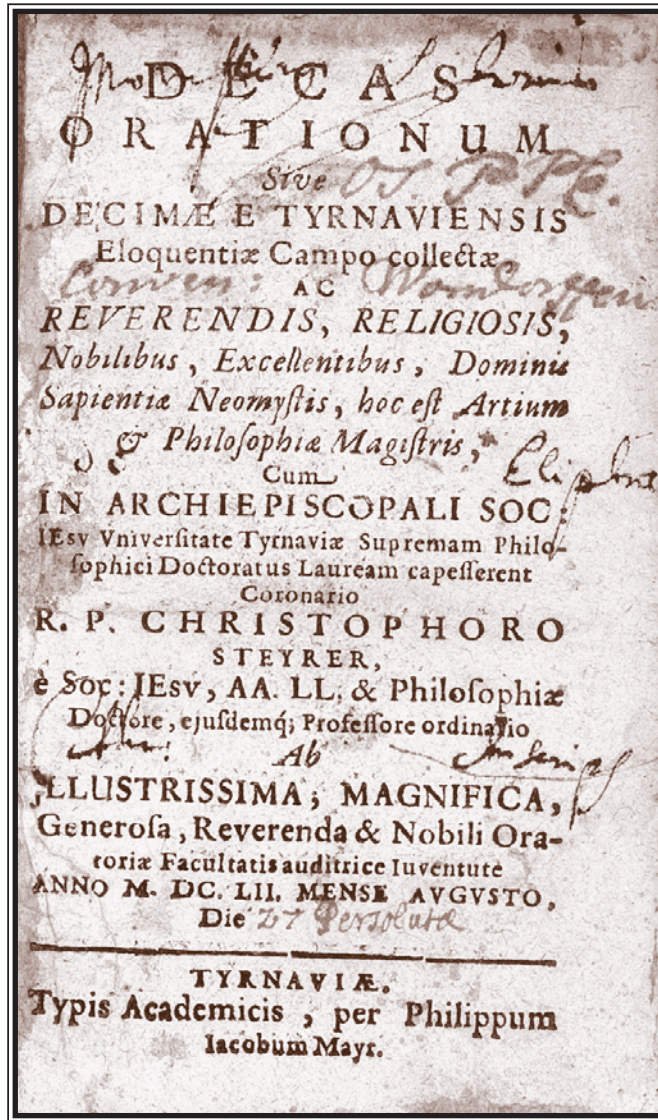 DECAS
ORATIONUM
Sive OS PPE.
DECIMÆ E TYRNAVIENSIS
Eloquentiæ Campo collectæ
Conven:
AC
REVERENDIS, RELIGIOSIS,
Nobilibus, Excellentibus, Dominis
Sapientiæ Neomyſtis, hoc eſt Artium
& Philoſophiæ Magiſtris,
Cum
IN ARCHIEPISCOPALI SOC:
IEsv Vniverſitate Tyrnaviæ Supremam Philo-
ſophici Doctoratus Lauream capeſſerent
Coronario
R. P. CHRISTOPHORO
STEYRER,
è Soc: IEsv, AA. LL. & Philoſophiæ
Doctore, ejuſdemq́; Profeſſore ordinario
Ab
ILLUSTRISSIMA, MAGNIFICA,
Generoſa, Reverenda & Nobili Ora-
toriæ Facultatis auditrice Iuventute
ANNO M. DC. LII. MENSE AVGVSTO,
Die 27 Persolutæ
TYRNAVIÆ.
Typis Academicis, per Philippum
Iacobum Mayr.